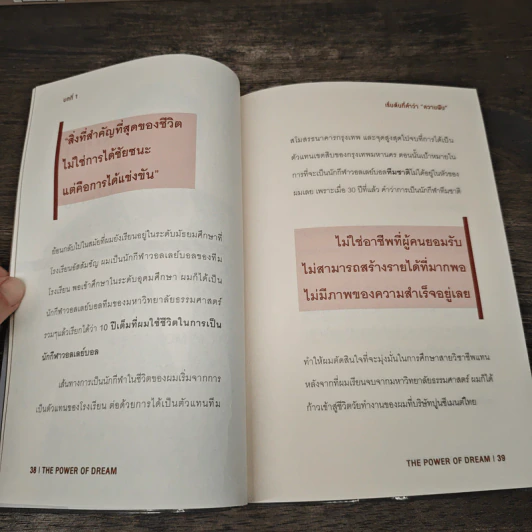 บทที่ 1
"สิ่งที่สำคัญที่สุดของชีวิต
ไม่ใช่การได้ชัยชนะ
แต่คือการได้แข่งขัน"
ย้อนกลับไปในสมัยที่ผมยังเรียนอยู่ในระดับมัธยมศึกษาที่
โรงเรียนอัสสัมชัญ ผมเป็นนักกีฬาวอลเลย์บอลของทีม
โรงเรียน พอเข้าศึกษาในระดับอุดมศึกษา ผมก็ได้เป็น
นักกีฬาวอลเลย์บอลทีมของมหาวิทยาลัยธรรมศาสตร์
รวมๆแล้วเรียกได้ว่า 10 ปีเต็มที่ผมใช้ชีวิตในการเป็น
นักกีฬาวอลเลย์บอล
เส้นทางการเป็นนักกีฬาในชีวิตของผมเริ่มจากการ
เป็นตัวแทนของโรงเรียน ต่อด้วยการได้เป็นตัวแทนทีม
38 | THE POWER OF DREAM
เริ่มต้นที่คำว่า "ความฝัน"
สโมสรธนาคารกรุงเทพ และจุดสูงสุดไปจบที่การได้เป็น
ตัวแทนเขตสิบของกรุงเทพมหานคร ตอนนั้นเป้าหมายใน
การที่จะเป็นนักกีฬาวอลเลย์บอลทีมชาติไม่ได้อยู่ในหัวของ
ผมเลย เพราะเมื่อ 30 ปีที่แล้ว คำว่าการเป็นนักกีฬาทีมชาติ
ไม่ใช่อาชีพที่ผู้คนยอมรับ
ไม่สามารถสร้างรายได้ที่มากพอ
ไม่มีภาพของความสำเร็จอยู่เลย
ทำให้ผมตัดสินใจที่จะมุ่งมั่นในการศึกษาสายวิชาชีพแทน
หลังจากที่ผมเรียนจบจากมหาวิทยาลัยธรรมศาสตร์ ผมก็ได้
ก้าวเข้าสู่ชีวิตวัยทำงานของผมที่บริษัทปูนซีเมนต์ไทย
THE POWER OF DREAM | 39